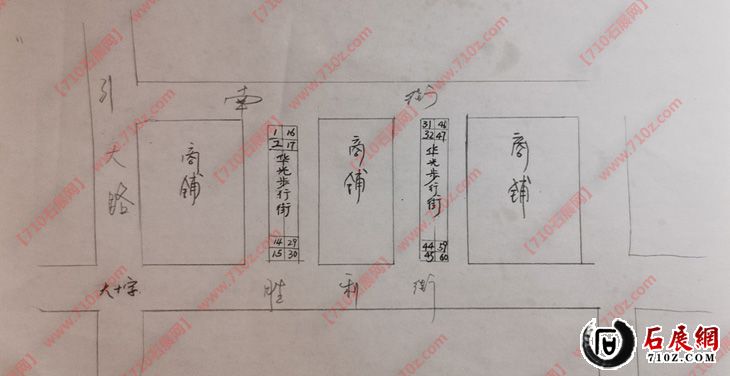 南街
引大路
商铺
1 16
2 17
华光步行街
14 29
15 30
商铺
31 46
32 47
华光步行街
44 59
45 60
商铺
大十字
胜利街
【710石展网】www.710z.com
石展網
710Z.COM